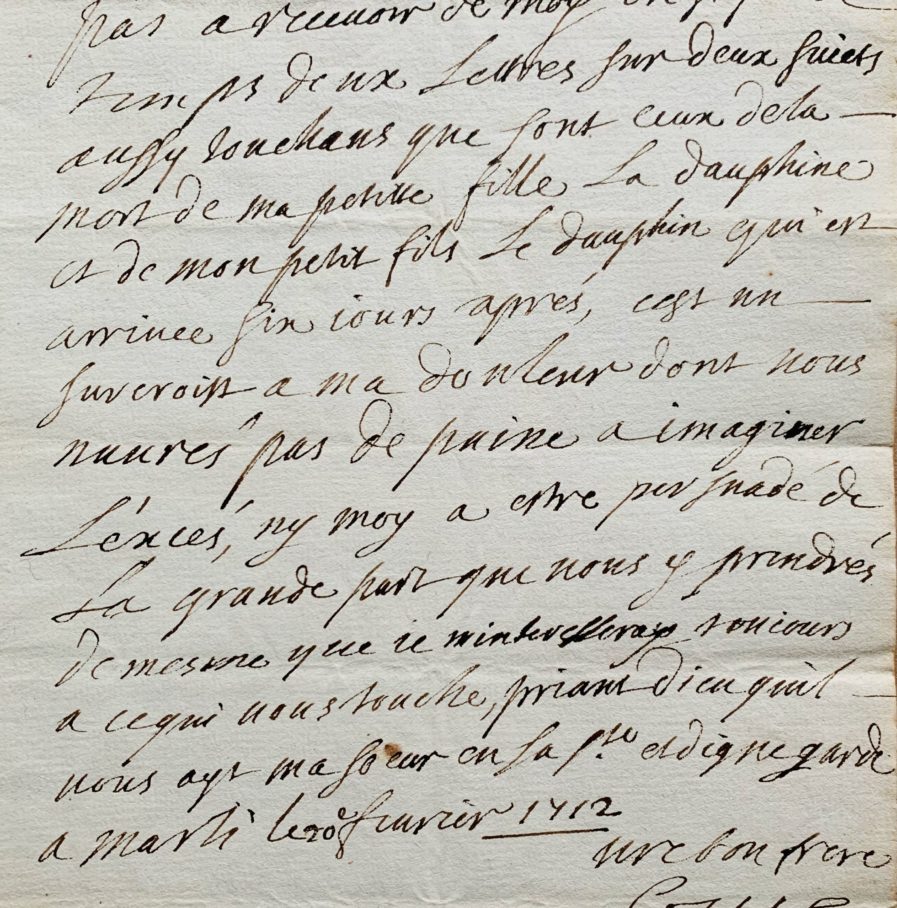 pas a receuoir de moy
temps deux Lettres sur deux suiets
aussy touchans que sont ceux dela
mort de ma petitte fille La dauphine
et de mon petit fils Le dauphin qui est
arriuee six iours aprés, cest un
surcroist a ma douleur dont vous
naurés pas de paine a imaginer
L'éxcés, ny moy a estre persuadé de
La grande part que vous y prendrés
de mesme que ie minteresseray tousiours
a cequi vous touche, priant Dieu quil
vous ayt ma soeur en sa s.te et digne garde
a marli le 20e feurier 1712
vre bon frere